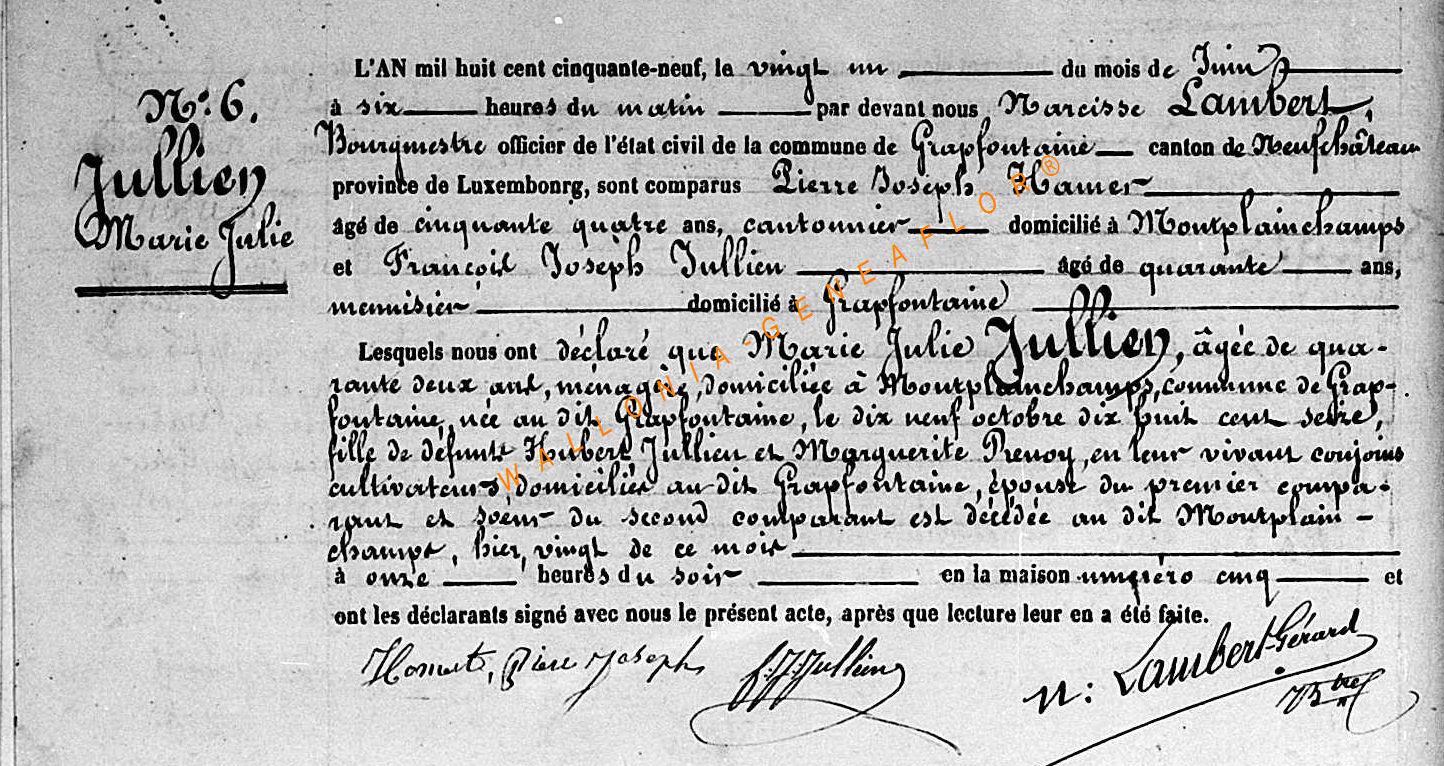 L'AN mil huit cent cinquante-neuf, le vingt un du mois de Juin
N.o 6.
à six heures du matin par devant nous Narcisse Lambert,
Bourgmestre officier de l'état civil de la commune de Grapfontaine canton de Neufchâteau
Jullien
province de Luxembourg, sont comparus Pierre Joseph Hamer
Marie Julie
âgé de cinquante quatre ans, cantonnier domicilié à Montplainchamps
et François Joseph Jullien âgé de quarante ans,
menuisier domicilié à Grapfontaine
Lesquels nous ont déclaré que Marie Julie Jullien, âgée de qua-
rante deux ans, ménagère, domiciliée à Montplainchamps, commune de Grap-
fontaine, née au dit Grapfontaine, le dix neuf octobre dix huit cent seize,
fille de défunts Hubert Jullien et Marguerite Prenoy, en leur vivant conjoins
cultivateurs, domiciliés au dit Grapfontaine, épouse du premier compa-
rant et soeur du second comparant est décédée au dit Montplain-
champs, hier, vingt de ce mois
à onze heures du soir en la maison numéro cinq et
ont les déclarants signé avec nous le présent acte, après que lecture leur en a été faite.
Pierre Joseph
f. J. Jullien
N: Lambert-Gérard
Btre
WALLONIA-GENEAFLOR®